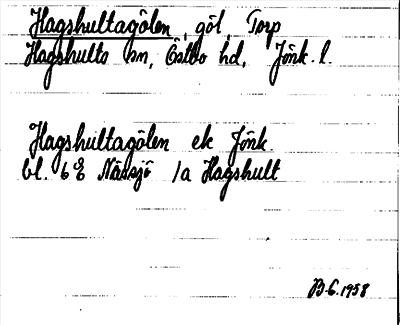 Hagshultagölen, göl, Torp
Hagshults sn, Östbo hd, Jönk. l.
Hagshultagölen ek Jönk.
bl. 6 E Nässjö 1a Hagshult
B.G. 1958